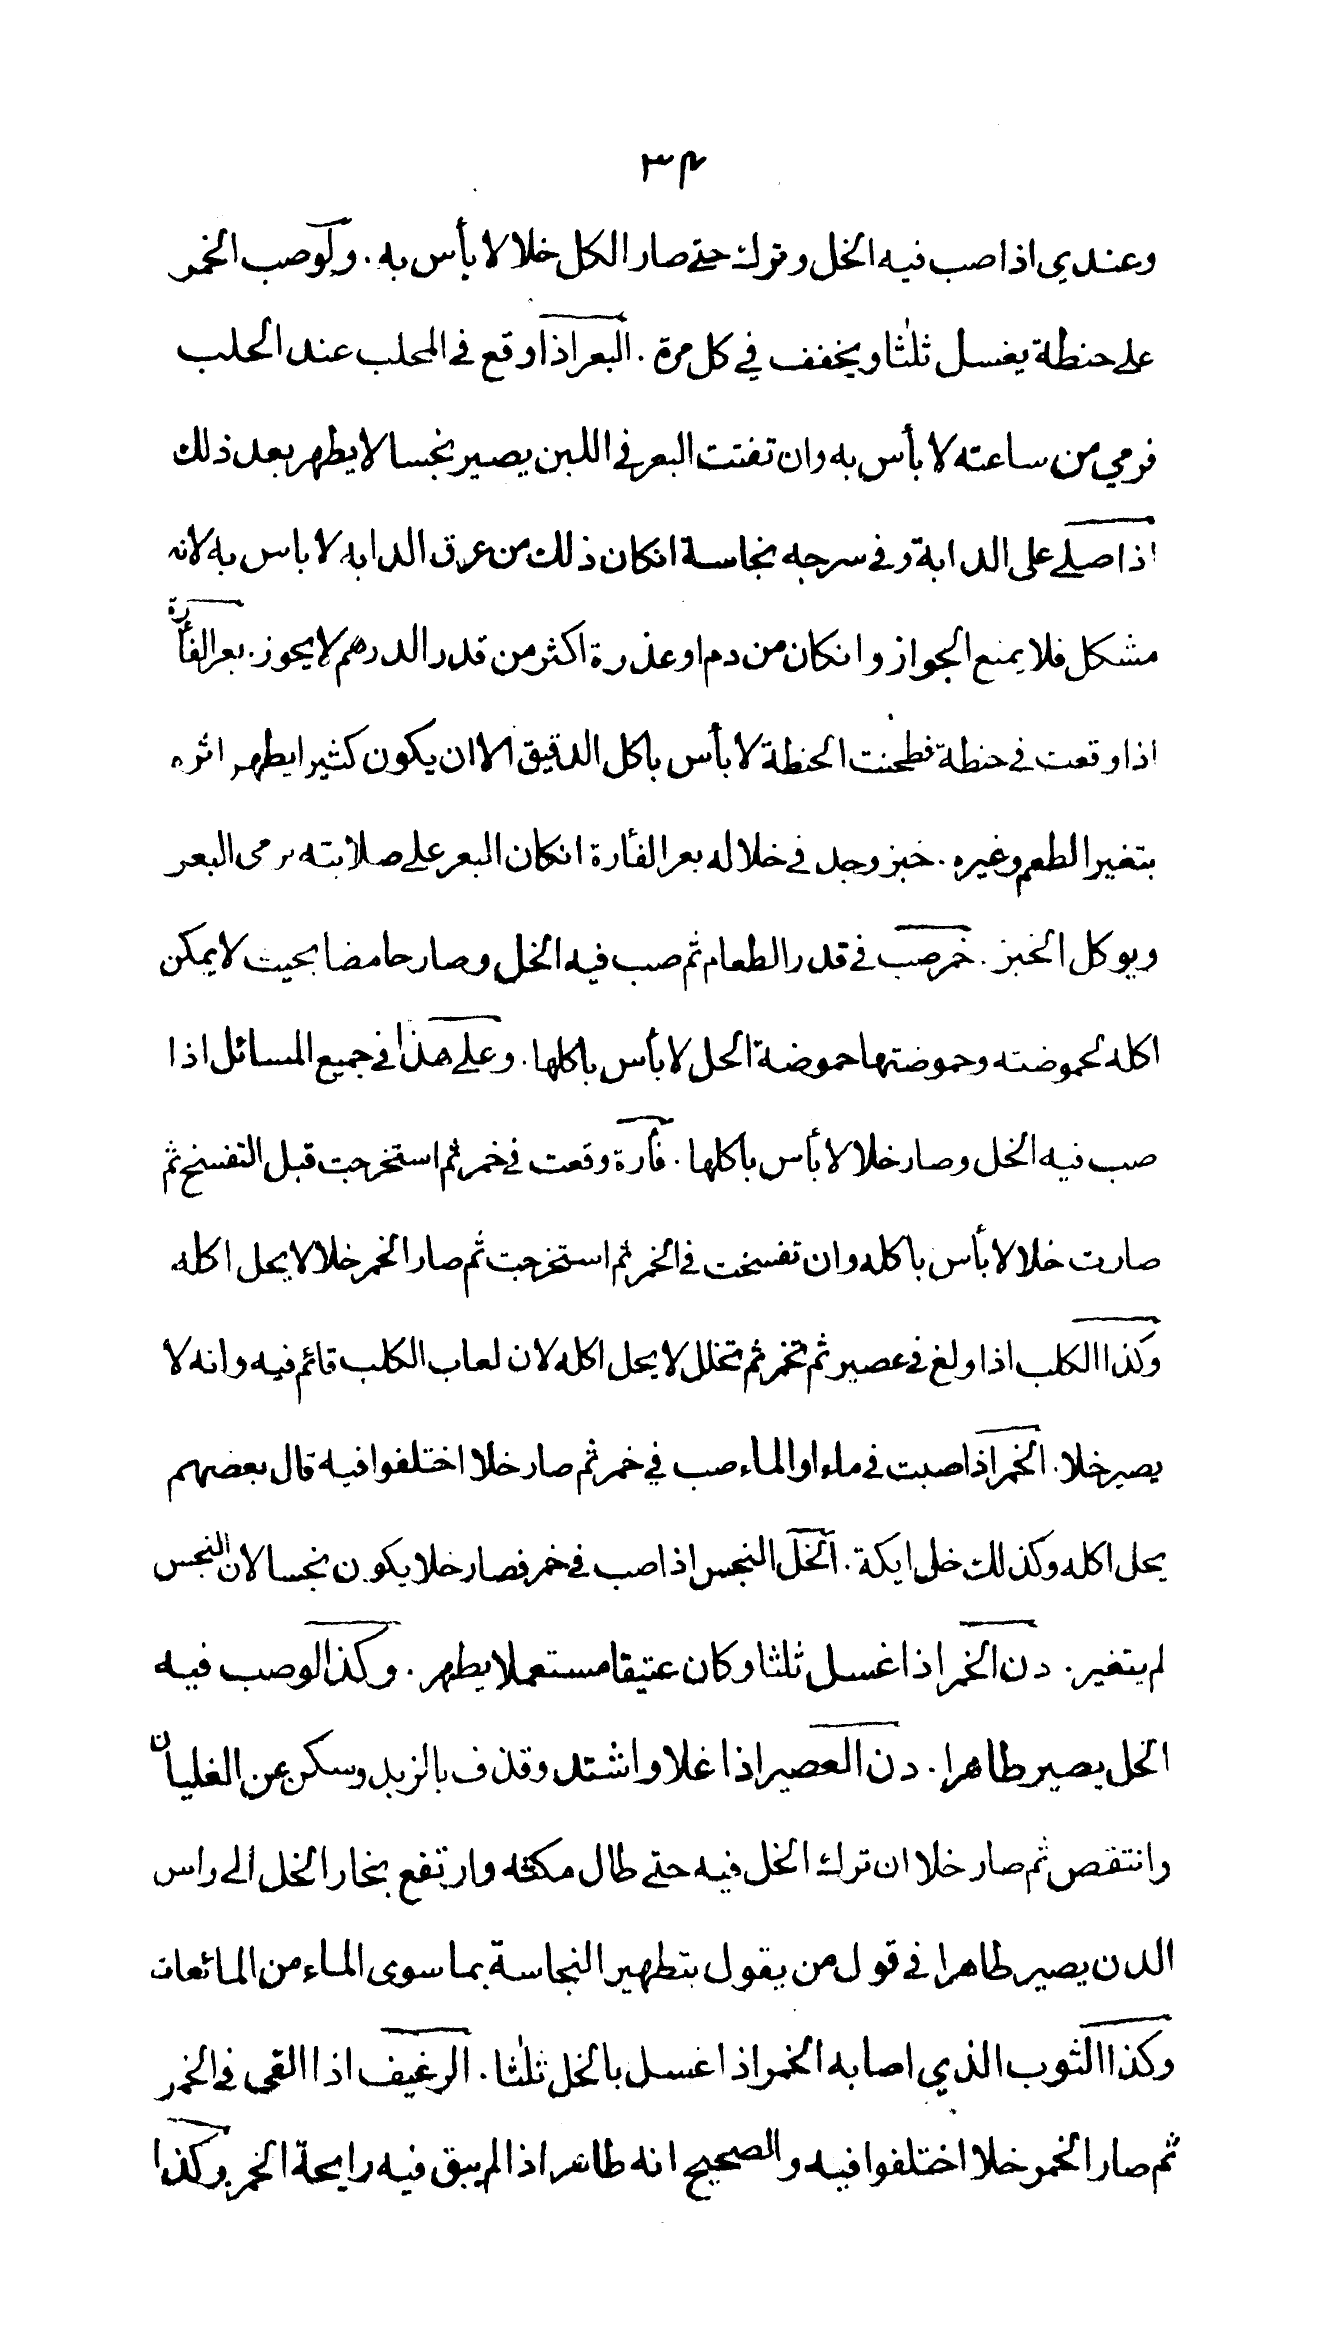 ٣٤
وعندي اذا صب فيه الخل وترك حتى صار الكل خلا لا بأس به. ولو صب الخمر
على حنطة يغسل ثلثا ويجفف في كل مرة. البعر اذا وقع في المحلب عند الحلب
فرمي من ساعته لا بأس به وان تفتت البعر في اللبن يصير نجسا لا يطهر بعد ذلك
اذا صلى على الدابة وفي سرجه نجاسة انكان ذلك من عرق الدابه لا باس به لانه
مشكل فلا يمنع الجواز وانكان من دم او عذرة اكثر من قدر الدرهم لا يجوز. بعر الفأرة
اذا وقعت في حنطة فطحنت الحنطة لا بأس باكل الدقيق الا ان يكون كثيرا يظهر اثره
بتغير الطعم وغيره. خبز وجد في خلاله بعر الفأرة انكان البعر على صلابته يرمى البعر
ويوكل الخبز. خمر صب في قدر الطعام ثم صب فيه الخل وصار حامضا بحيث لا يمكن
اكله لحموضته وحموضتها حموضة الخل لا بأس باكلها. وعلى هذا في جميع المسائل اذا
صب فيه الخل وصار خلا لا بأس باكلها. فأرة وقعت في خمر ثم استخرجت قبل التفسخ ثم
صارت خلا لا بأس باكله وان تفسخت في الخمر ثم استخرجت ثم صار الخمر خلا لا يحل اكله
وكذا الكلب اذا ولغ في عصير ثم تخمر ثم تخلل لا يحل اكله لان لعاب الكلب قائم فيه وانه لا
يصير خلا. الخمر اذا صبت في ماء او الماء صب في خمر ثم صار خلا اختلفوا فيه قال بعضهم
يحل اكله وكذلك خلى ايكة. الخل النجس اذا صب في خمر فصار خلا يكون نجسا لان النجس
لم يتغير. دن الخمر اذا غسل ثلثا وكان عتيقا مستعملا يطهر. وكذا لو صب فيه
الخل يصير طاهرا. دن العصير اذا غلا واشتد وقذف بالزبد وسكن عن الغليان
وانتقص ثم صار خلا ان ترك الخل فيه حتى طال مكثه وارتفع بخار الخل الى راس
الدن يصير طاهرا في قول من يقول بتطهير النجاسة بما سوى الماء من المائعات
وكذا الثوب الذي اصابه الخمر اذا غسل بالخل ثلثا. الرغيف اذا القى في الخمر
ثم صار الخمر خلا اختلفوا فيه والصحيح انه طاهر اذا لم يبق فيه رايحة الخمر وكذا